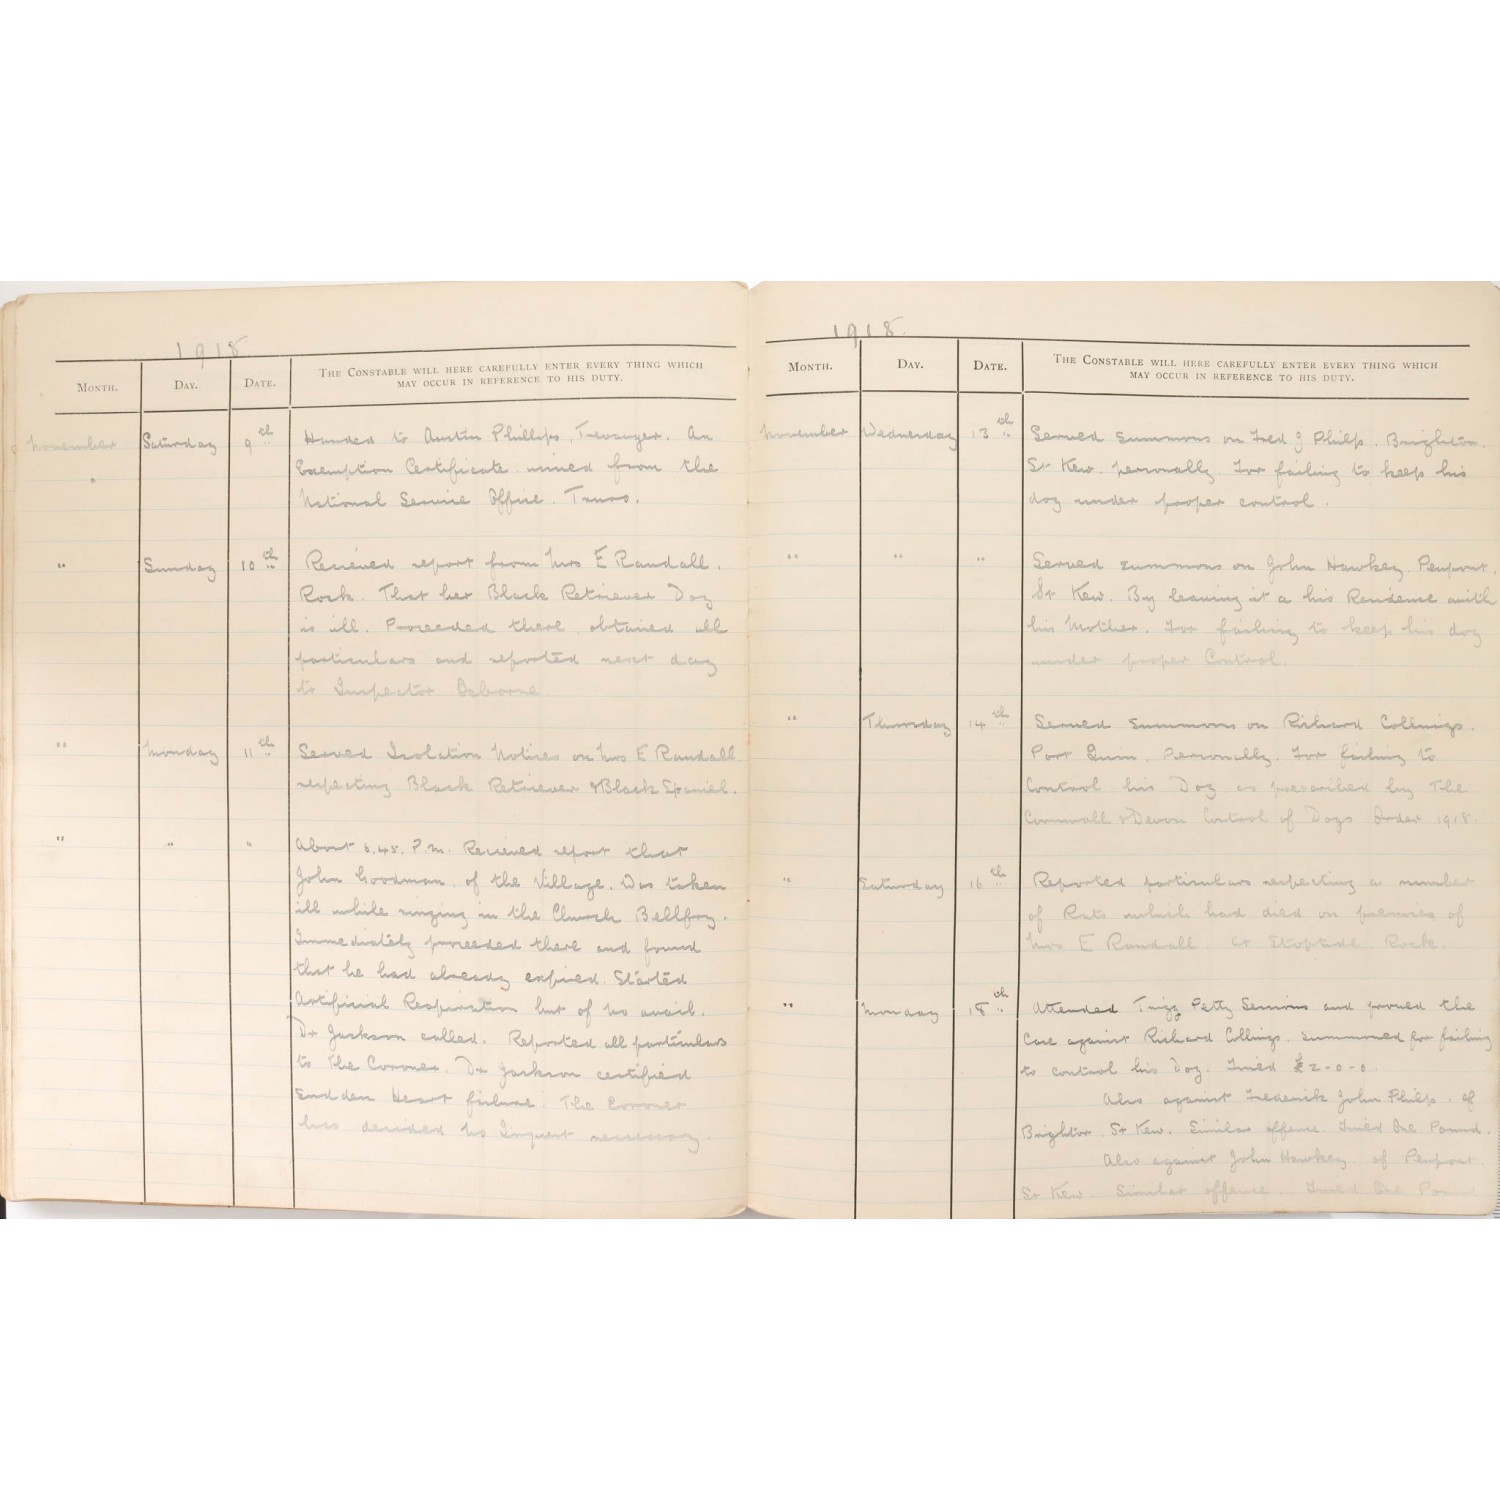 1918
MONTH. DAY. DATE. THE CONSTABLE WILL HERE CAREFULLY ENTER EVERY THING WHICH
MAY OCCUR IN REFERENCE TO HIS DUTY.
November Saturday 9th Handed to Austin Phillips, Trevanger. An
" Exemption Certificate from the
National Service Office. Truro.
" Sunday 10th Recieved report from Mrs E Randall.
Rock. That her Black Retriever Dog
is ill. Proceeded there obtained all
particulars and reported next day
to Inspector Osborne
" Monday 11th Served Isolation Notices on Mrs E Randall
respecting Black Retriever & Black Spaniel.
" " " About 6.45. P.M. Recieved report that
John Goodman of the Village. Was taken
ill while ringing in the Church Bellfry.
Immediately proceeded there and found
that he had already expired. Started
Artificial Respiration but of no avail.
Dr Jackson called. Reported all particulars
to The Coroner. Dr Jackson certified
Sudden Heart failure. The Coroner
has decided No Inquest necessary.
1918.
MONTH. DAY. DATE. THE CONSTABLE WILL HERE CAREFULLY ENTER EVERY THING WHICH
MAY OCCUR IN REFERENCE TO HIS DUTY.
November Wednesday 13th Served summons on Fred J Philp. Brighton.
St Kew. personally. For failing to keep his
dog under proper control.
" " " Served summons on John Hawkey. Penpont.
St Kew. By leaving it a his Residence with
his Mother. For failing to keep his dog
under proper Control.
" Thursday 14th Served summons on Richard Collings.
Port Quin. Personally. For failing to
Control his Dog as prescribed by The
Cornwall & Devon Control of Dogs Order 1918.
" Saturday 16th Reported particulars respecting a number
of Rats which had died on premies of
Mrs E Randall at Rock.
" Monday 18th Attended Trigg Petty Sessions and proved the
Case against Richard Collings. Summoned for failing
to control his Dog. Fined £2-0-0.
Also against Frederick John Philp. of
Brighton St Kew. Similar offence. Fined One Pound.
Also against John Hawkey of Penpont.
St Kew. Similar offence. Fined One Pound